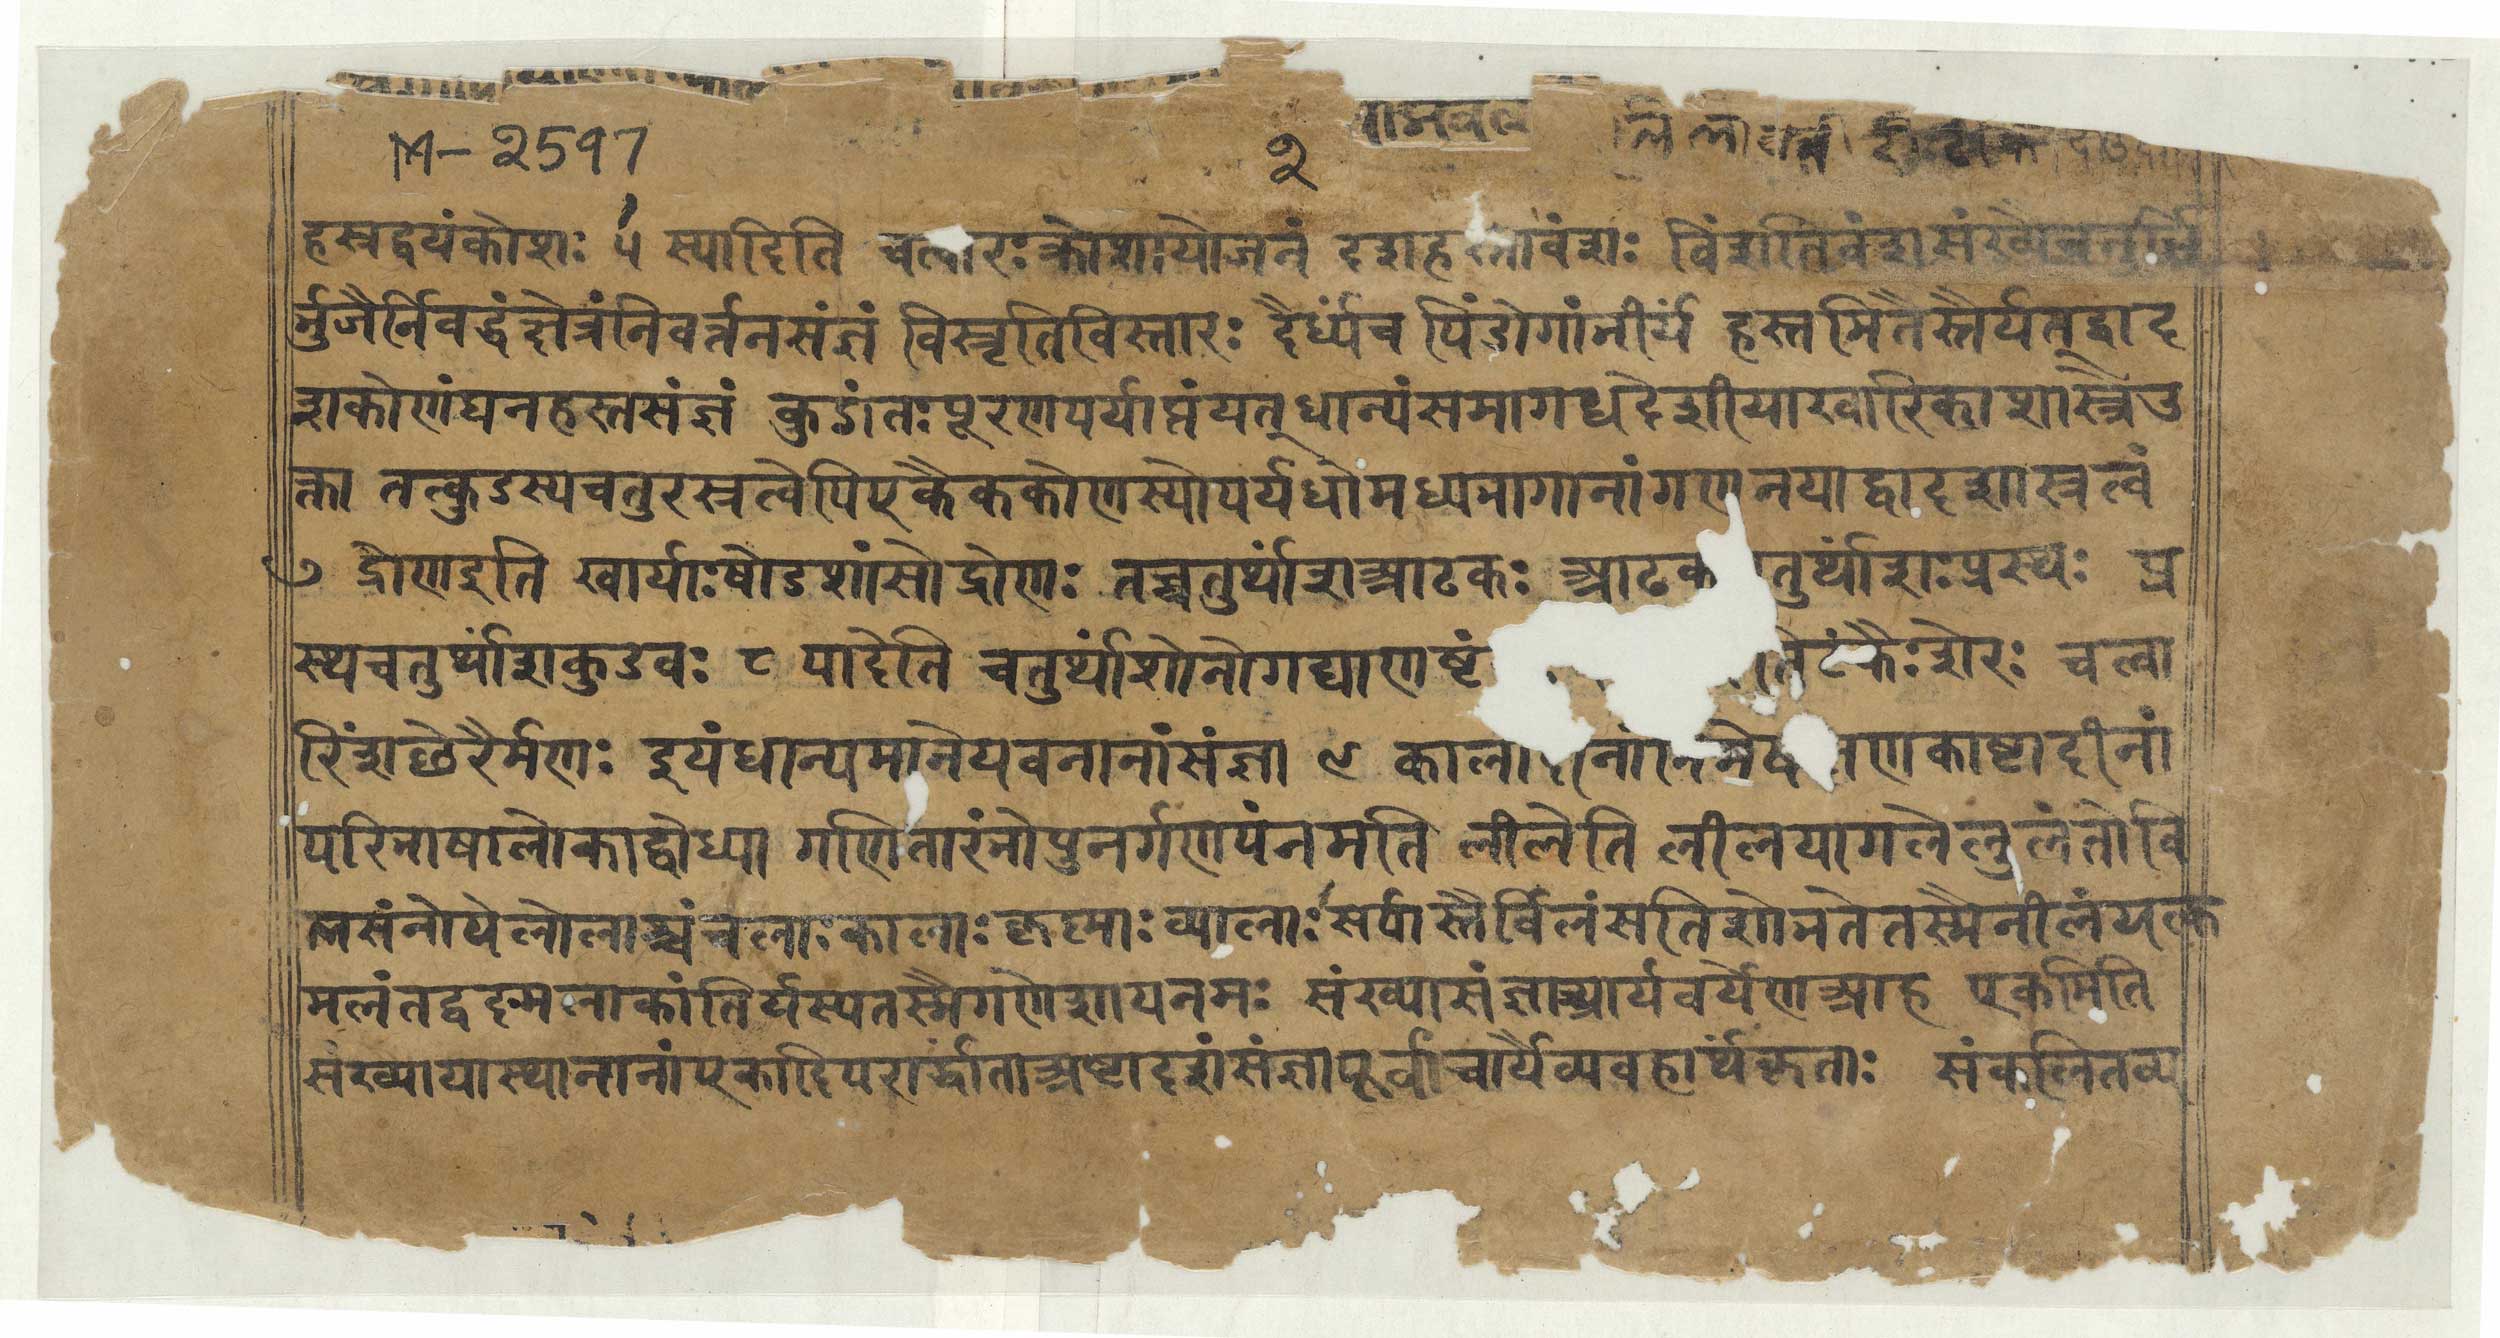 M-2597
२
हस्रद्वयंकोशः ५ स्यादिति चत्वारःक्रोशायोजनं दशहस्तोवंशः विंशतिवंशसंख्यैश्चतुर्भि
र्भुजैर्निवद्धंक्षेत्रंनिवर्त्तनसंज्ञं विस्तृतिविस्तारः दैर्ध्यंच पिंडोगांभीर्यं हस्तमितैस्तैर्यत्द्वाद
शकोणंघनहस्तसंज्ञं कुडांतःपूरणपर्याप्तंयत्धान्यंसमागधदेशीयाखारिकाशास्त्रैउ
क्ता तत्कुडस्यचतुरस्रत्वेपिएकैककोणस्योपर्यधोमध्यभागानांगणनयाद्वादशास्रत्वं
७ द्रोणइति खार्याःषोडशांसोद्रोणः तच्चतुर्थांशआटकः आटक तुर्थांशःप्रस्थः प्र
स्थचतुर्थांशकुडवः ८ पादेति चतुर्थांशोनोगद्याणष्टं टंकैःशेरः चत्वा
रिंशछेरैर्मणः इयंधान्यमानेयवनानांसंज्ञा ९ काला णकाष्टादीनां
परिभाषालोकाद्वोध्या गणितारंभोपुनर्गणपंनमति लीलेति लीलयागलेलुलंतोवि
लसंतोयेलोलाश्चंचलाःकालाःकृष्माः व्यालाःसर्पास्तैर्विलंसतिशोभतेतस्मैनीलंयत्क
मलंतद्वदमलाकांतिर्यस्यतस्मैगणेशायनमः संख्यासंज्ञाआर्यवर्येणआह एकमिति
संख्यायास्थानानांएकादिपरार्द्धांताअष्टादशसंज्ञापूर्वाचार्यैव्यवहार्थंकृताः संकलितव्य